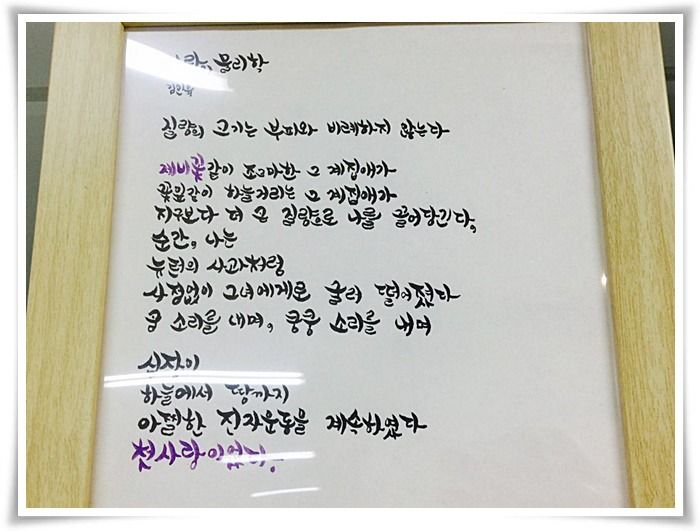 사랑의 물리학
김인육
질량의 크기는 부피와 비례하지 않는다
제비꽃같이 조그마한 그 계집애가
꽃잎같이 하늘거리는 그 계집애가
지구보다 더 큰 질량으로 나를 끌어당긴다,
순간, 나는
뉴턴의 사과처럼
사정없이 그녀에게로 굴러 떨어졌다
쿵 소리를 내며, 쿵쿵 소리를 내며
심장이
하늘에서 땅까지
아찔한 진자운동을 계속하였다
첫사랑이었다.